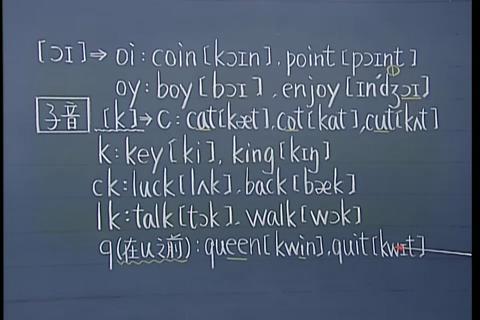 [ɔɪ]⇒oi:coin[kɔɪn].point[pɔɪnt]
oy:boy[bɔɪ],enjoy[ɪn'dʒɔɪ]
子音 [k]→c:cat[kæt],cot[kɑt],cut[kʌt]
k:key[ki],king[kɪŋ]
ck:luck[lʌk].back[bæk]
lk:talk[tɔk].walk[wɔk]
q(在u之前):queen[kwin].quit[kwɪt]